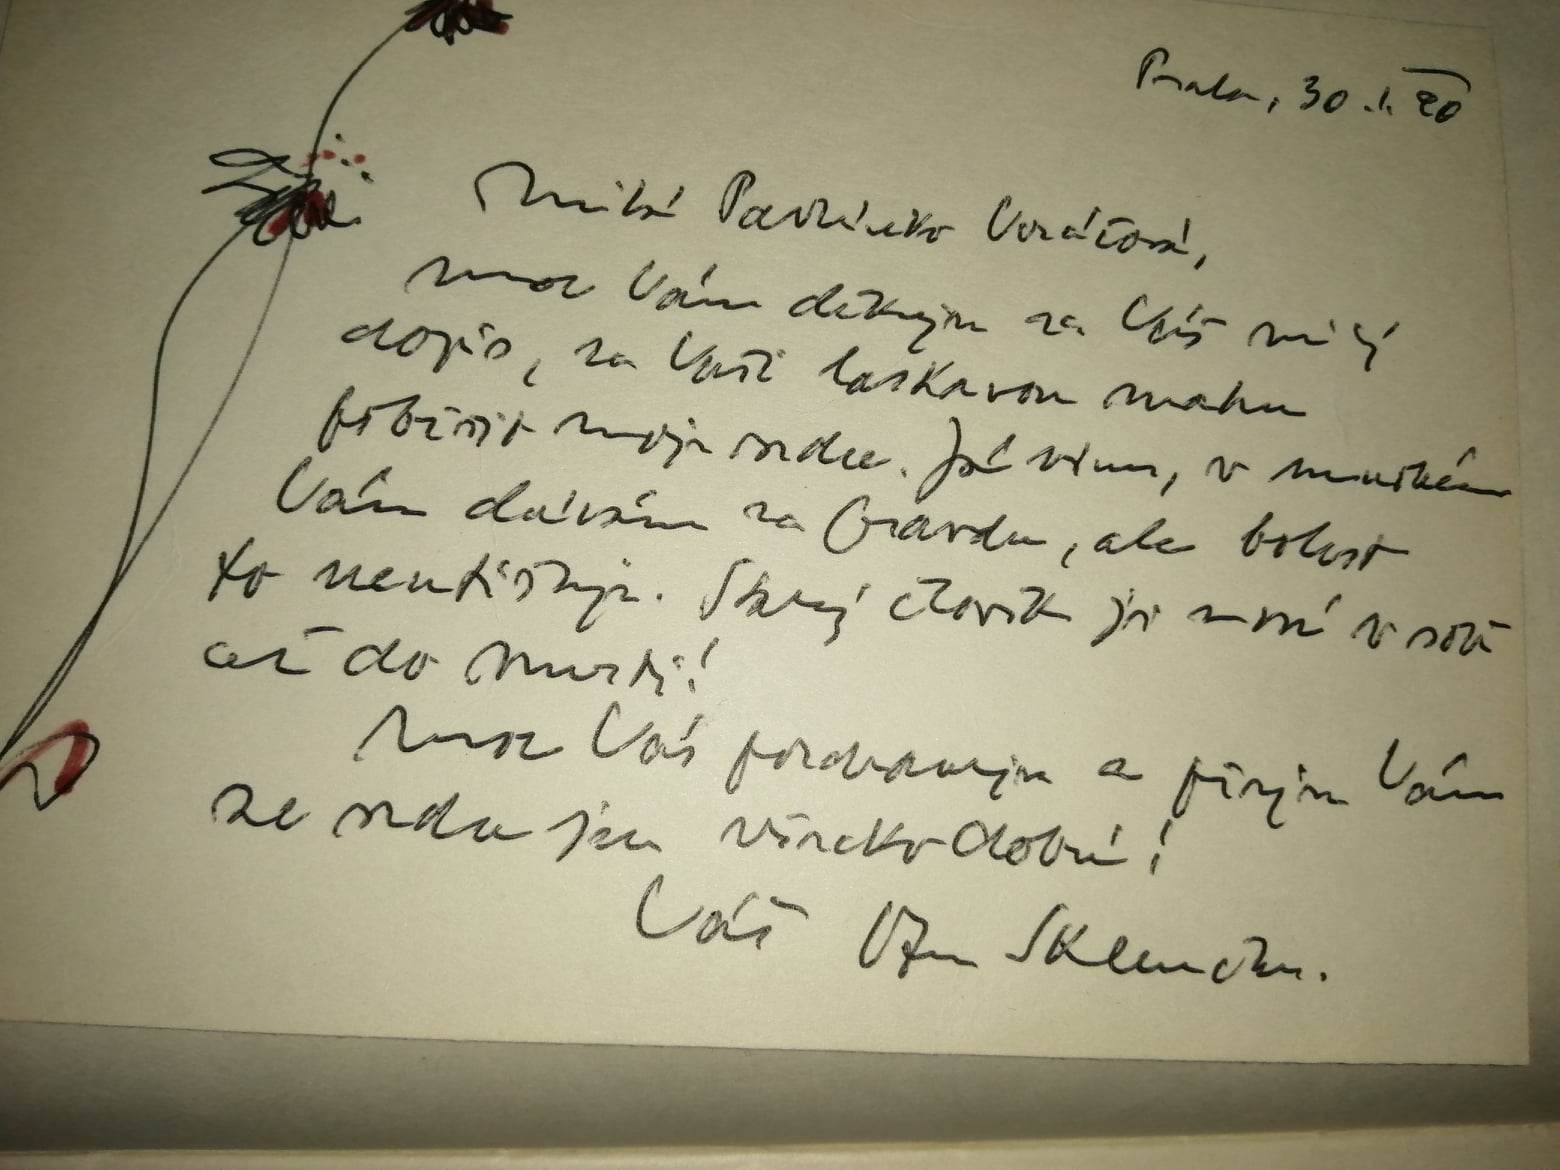 Praha, 30.1.20
Milá Pavlínko Voráčová,
moc Vám děkuju za Váš milý
dopis, za Vaši laskavou snahu
potěšit moje srdce. Já vím, v mnohém
Vám dávám za pravdu, ale bolest
to neutišuje. Starý člověk ji nosí v sobě
až do smrti!
Moc Vás pozdravuju a přeju Vám
ze srdce jen všecko dobré!
Váš Sklenčka.